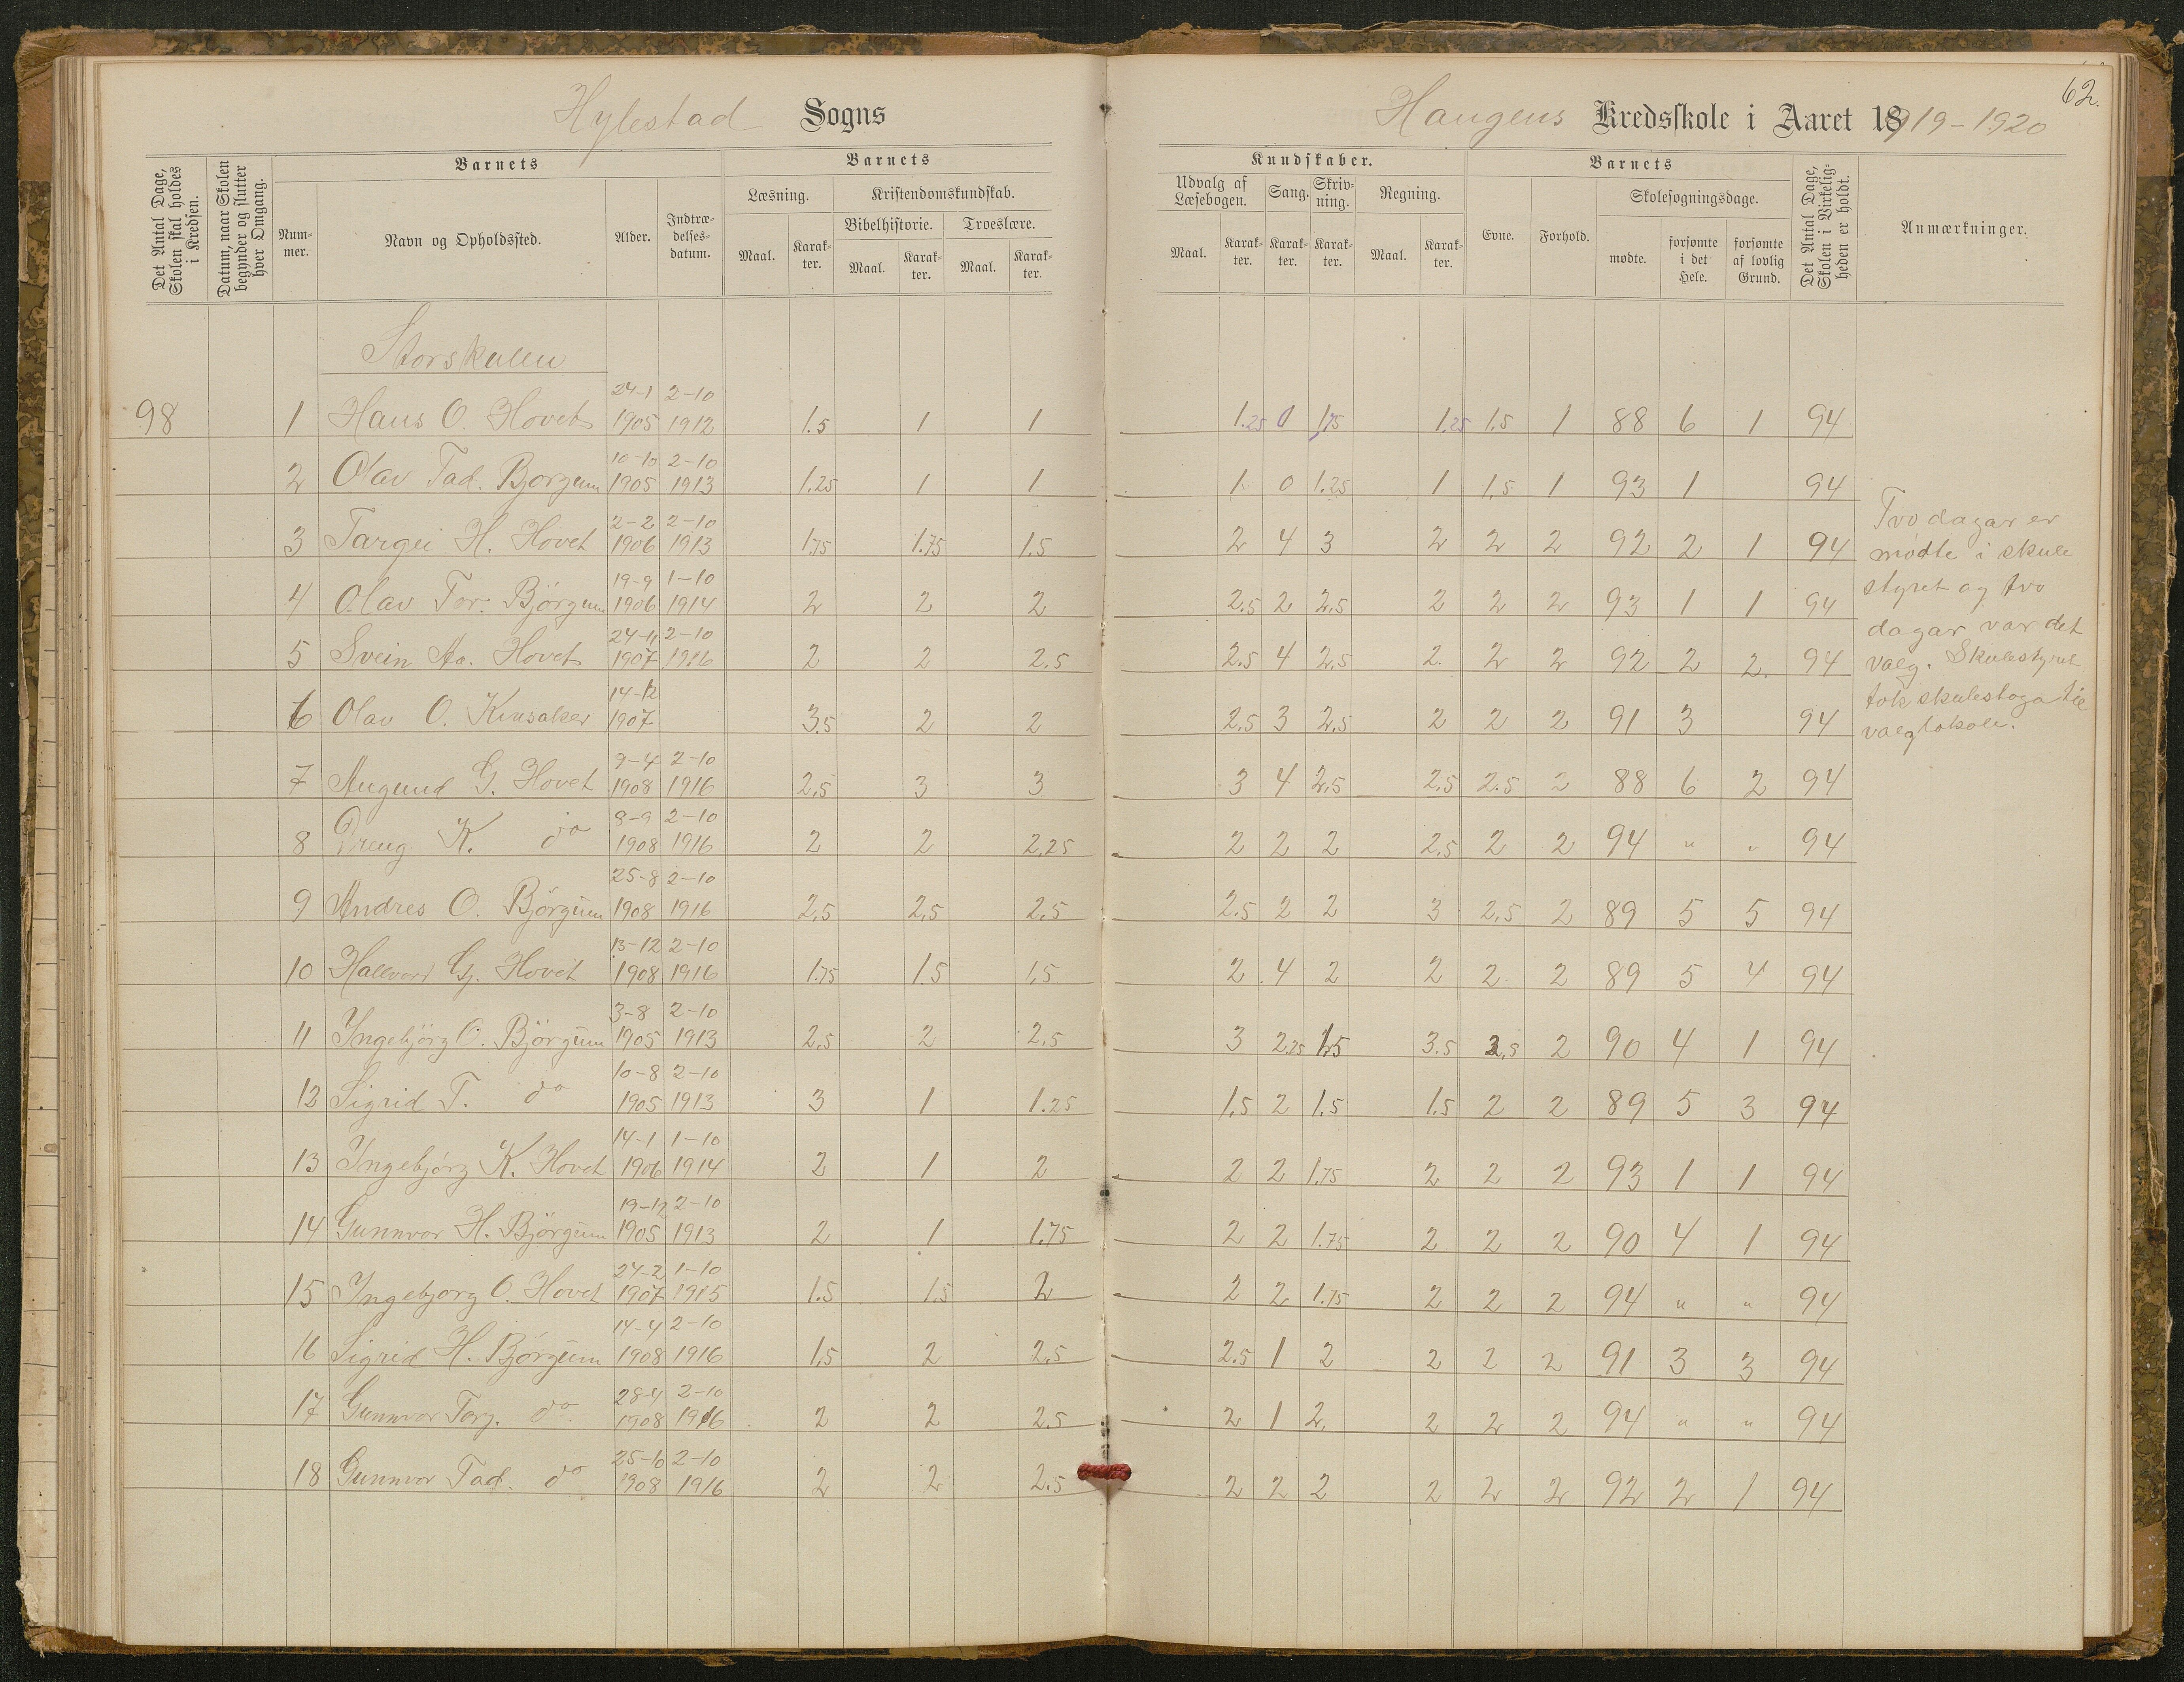 62.
Hylestad Sogns Haugens Kredsskole i Aaret 1919-1920
Det Antal Dage, Skolen skal holdes i Kredsen.
Datum, naar Skolen begynder og slutter hver Omgang.
Barnets
Nummer.
Navn og Opholdssted.
Alder.
Indtrædelsesdatum.
Barnets
Læsning.
Maal. Karakter.
Kristendomskundskab.
Bibelhistorie. Troeslære.
Maal. Karakter. Maal. Karakter.
Kundskaber.
Udvalg af Læsebogen.
Maal. Karakter.
Sang. Karakter.
Skrivning. Karakter.
Regning.
Maal. Karakter.
Barnets
Evne. Forhold.
Skolesøgningsdage.
mødte. forsømte i det Hele. forsømte af lovlig Grund.
Det Antal Dage, Skolen i Virkeligheden er holdt.
Anmærkninger.
Storskulen
24-1 2-10
98 1 Haus O. Hovet 1905 1912 1.5 1 1 1.25 0 1,75 1.25 1.5 1 88 6 1 94
10-10 2-10
2 Olav Tad. Bjorgum 1905 1913 1.25 1 1 1 0 1.25 1 1.5 1 93 1 94
2-2 2-10
3 Targei H. Hovet 1906 1913 1.75 1.75 1.5 2 4 3 2 2 2 92 2 1 94
19-9 1-10
4 Olav Tor. Björgum 1906 1914 2 2 2 2.5 2 2.5 2 2 2 93 1 1 94
24-11 2-10
5 Svein Aa. Hovet 1907 1916 2 2 2.5 2.5 4 2.5 2. 2 2 92 2 2. 94
14-12
6 Olav O. Kinsaker 1907 3.5 2 2 2.5 3 2.5 2 2 2 91 3 94
9-4 2-10
7 Augund G. Hovet 1908 1916 2.5 3 3 3 4 2.5 2.5 2.5 2 88 6 2 94
8-9 2-10
8 Dreng K. do 1908 1916 2 2 2.25 2 2 2 2.5 2 2 94 " " 94
25-8 2-10
9 Andres O. Björgum 1908 1916 2.5 2.5 2.5 2.5 2 2 3 2.5 2 89 5 5 94
13-12 2-10
10 Hallvard Gj. Hovet 1908 1916 1.75 1.5 1.5 2 4 2 2 2 2 89 5 4 94
3-8 2-10
11 Yngebjörg O. Björgum 1905 1913 2.5 2 2.5 3 2.25 1.5 3.5 2.5 2 90 4 1 94
10-8 2-10
12 Sigrid T. do 1905 1913 3 1 1.25 1.5 2 1.5 1.5 2 2 89 5 3 94
14-1 1-10
13 Yngebjörg K. Hovet 1906 1914 2 1 2 2 2 1.75 2 2 2 93 1 1 94
19-12 2-10
14 Gunnvor H. Björgum 1905 1913 2 1 1.75 2 2 1.75 2 2 2 90 4 1 94
24-2 1-10
15 Yngebjorg O. Hovet 1907 1915 1.5 1.5 2 2 2 1.75 2 2 2 94 " " 94
14-4 2-10
16 Sigrid H. Björgum 1908 1916 1.5 2 2.5 2.5 1 2 2 2 2 91 3 3 94
28-4 2-10
17 Gunnvor Torg. do. 1908 1916 2 2 2.5 2 1 2. 2 2 2 94 " " 94
25-10 2-10
18 Gunnvor Tad. do 1908 1916 2 2 2.5 2 2 2 2 2 2 92 2 1 94
Tvo dagar er
mødte i skule
styret og tvo
dagar var det
valg. Skulestyret
tok skulestoga til
valglokale.